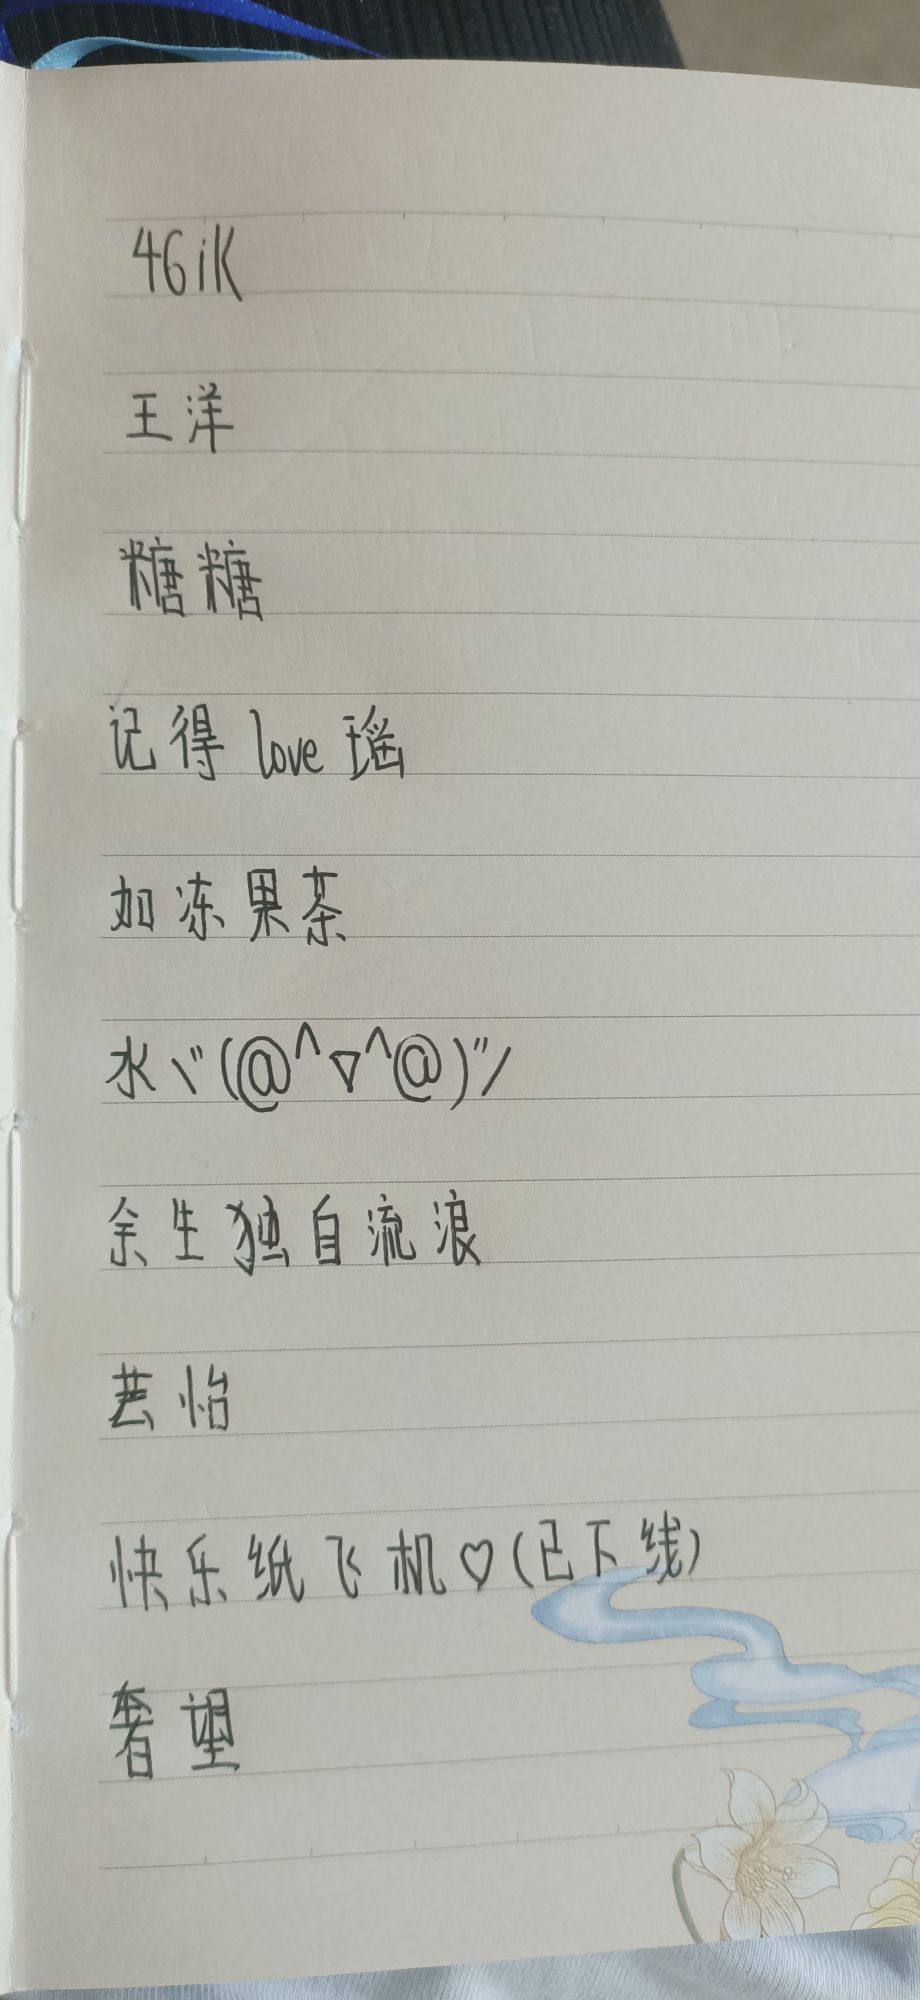 46iK
王洋
糖糖
记得love瑶
如冻果茶
水ヾ(@^▽^@)ﾉ
余生独自流浪
芸怡
快乐纸飞机♡(已下线)
奢望